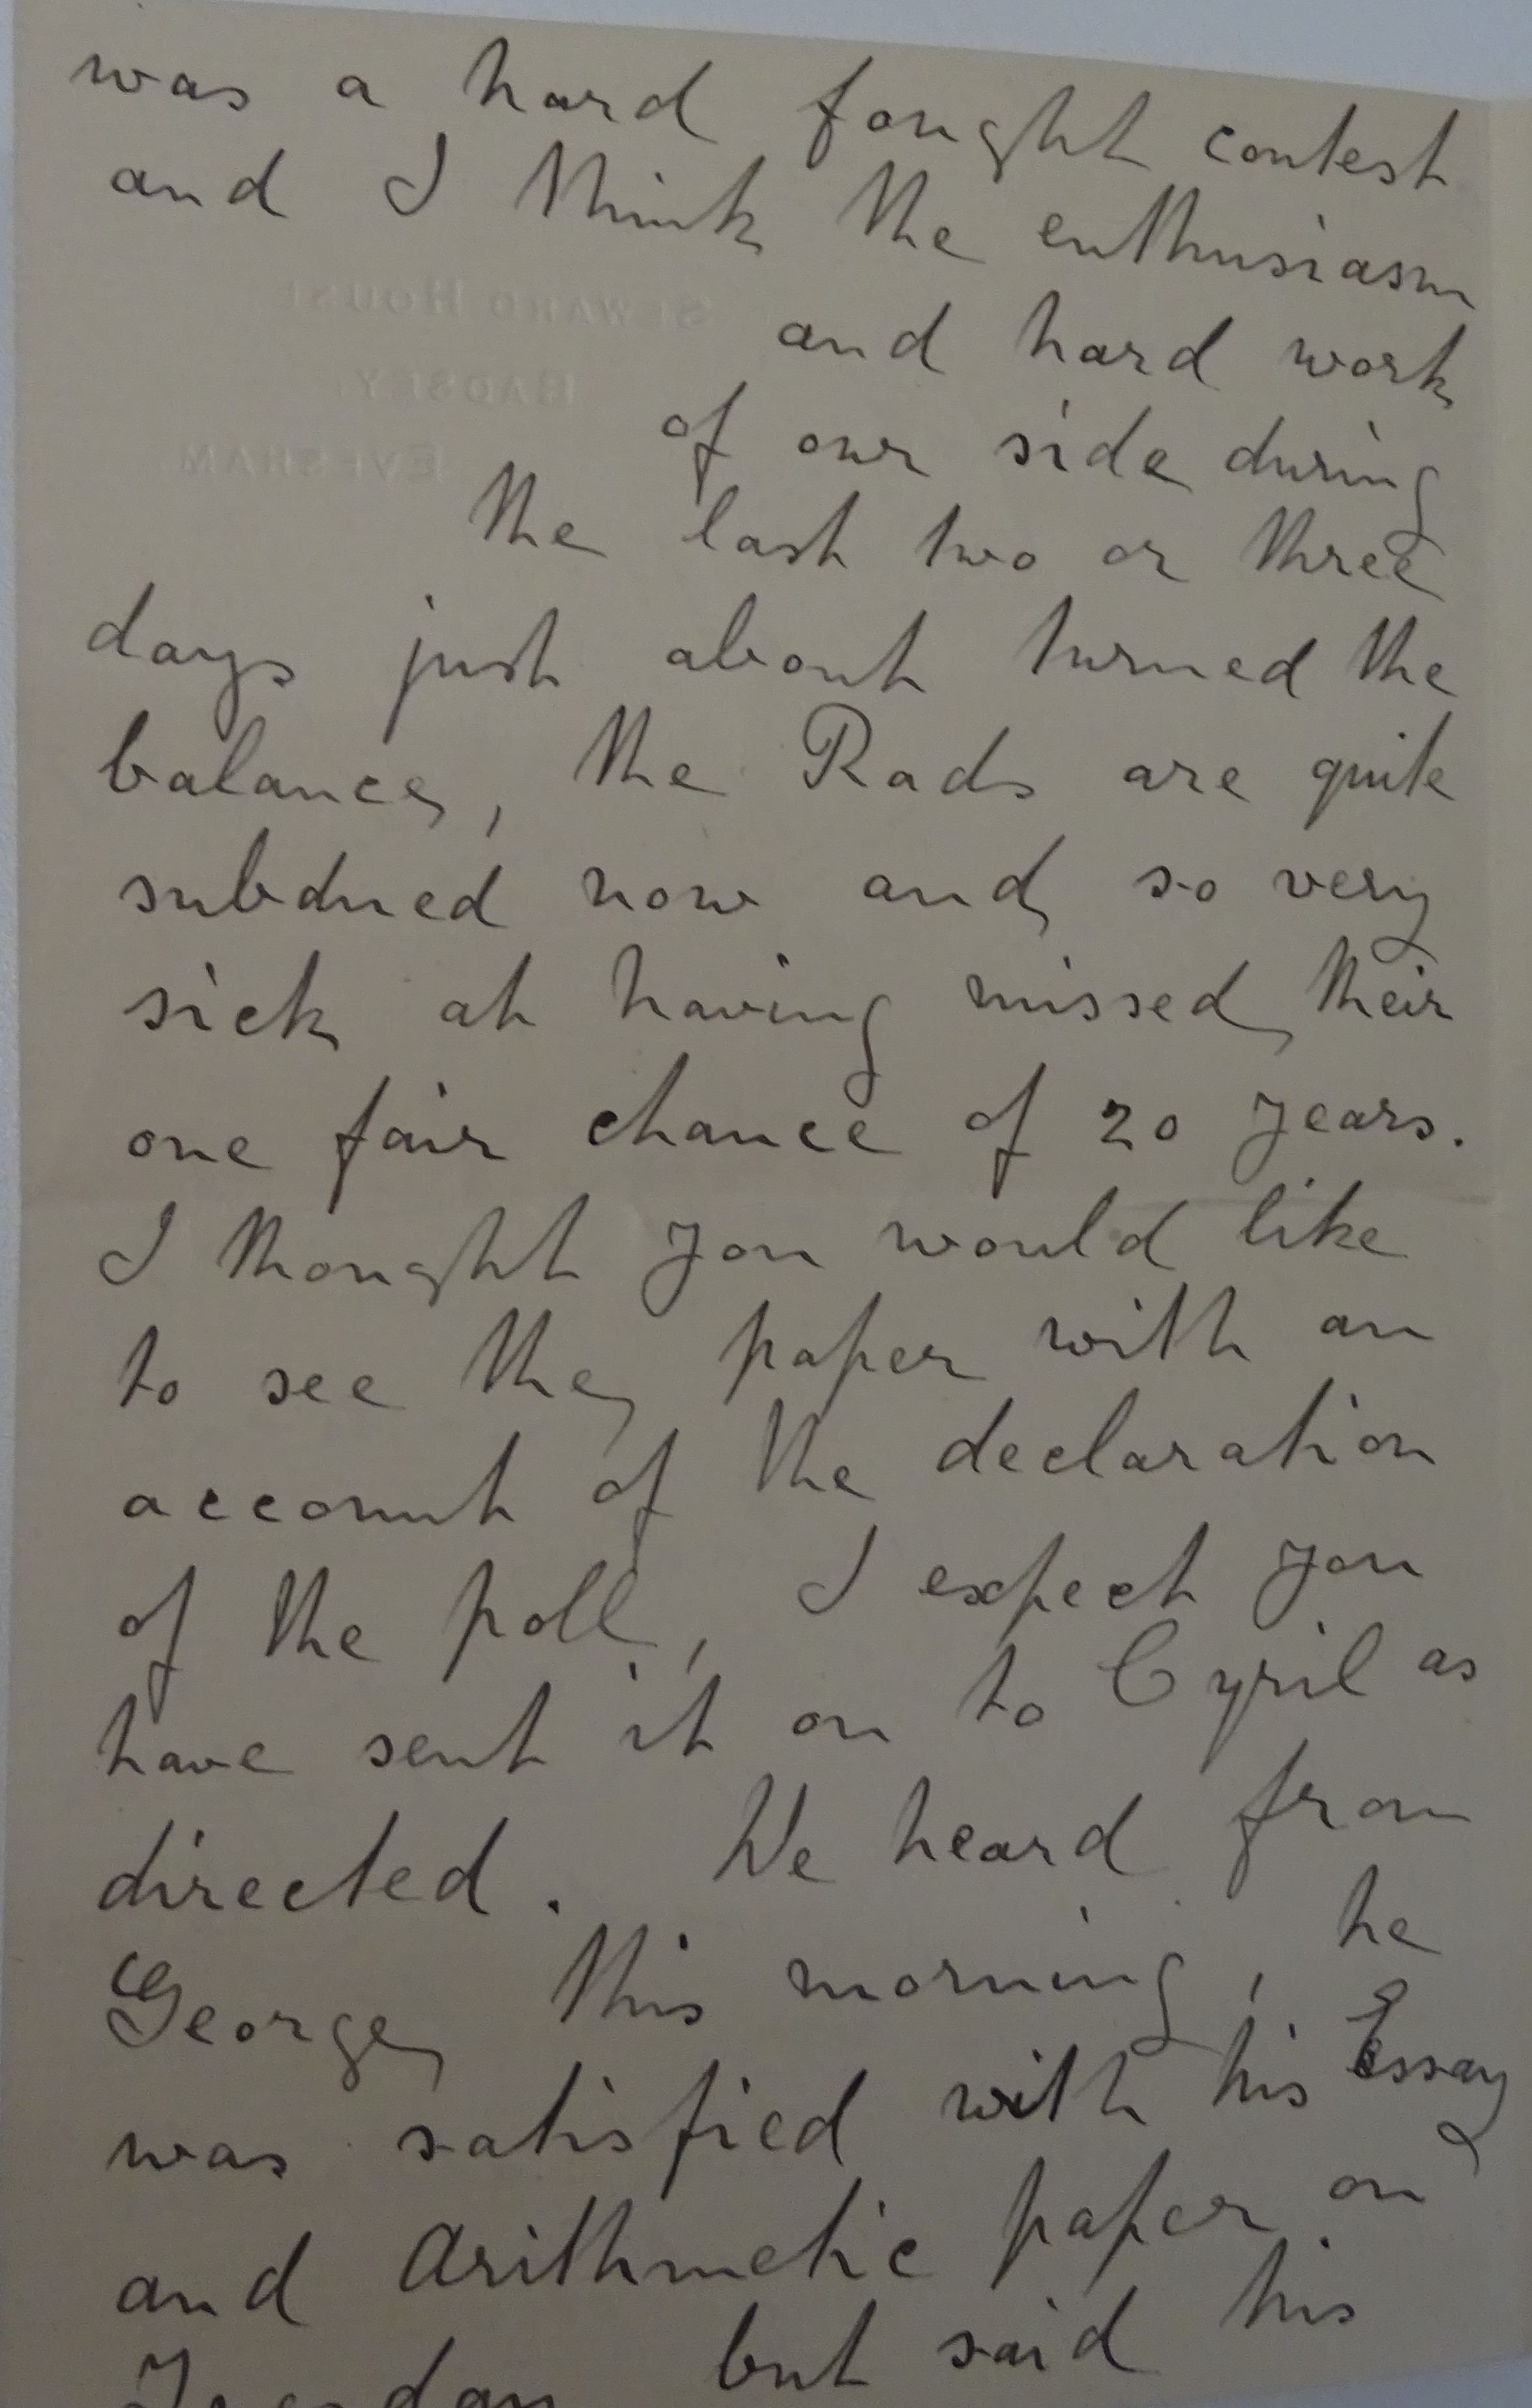 was a hard fought contest
and I think the enthusiasm
SEWARD HOUSE
and hard work
BADSEY,
of our side during
EVESHAM.
the last two or three
days just about turned the
balance, the Rads are quite
subdued now and so very
sick at having missed their
one fair chance of 20 years.
I thought you would like
to see the paper with an
account of the declaration
of the poll, I expect you
have sent it on to Cyril as
directed. We heard from
George this morning, he
was satisfied with his Essay
and Arithmetic paper on
Tuesday but said his